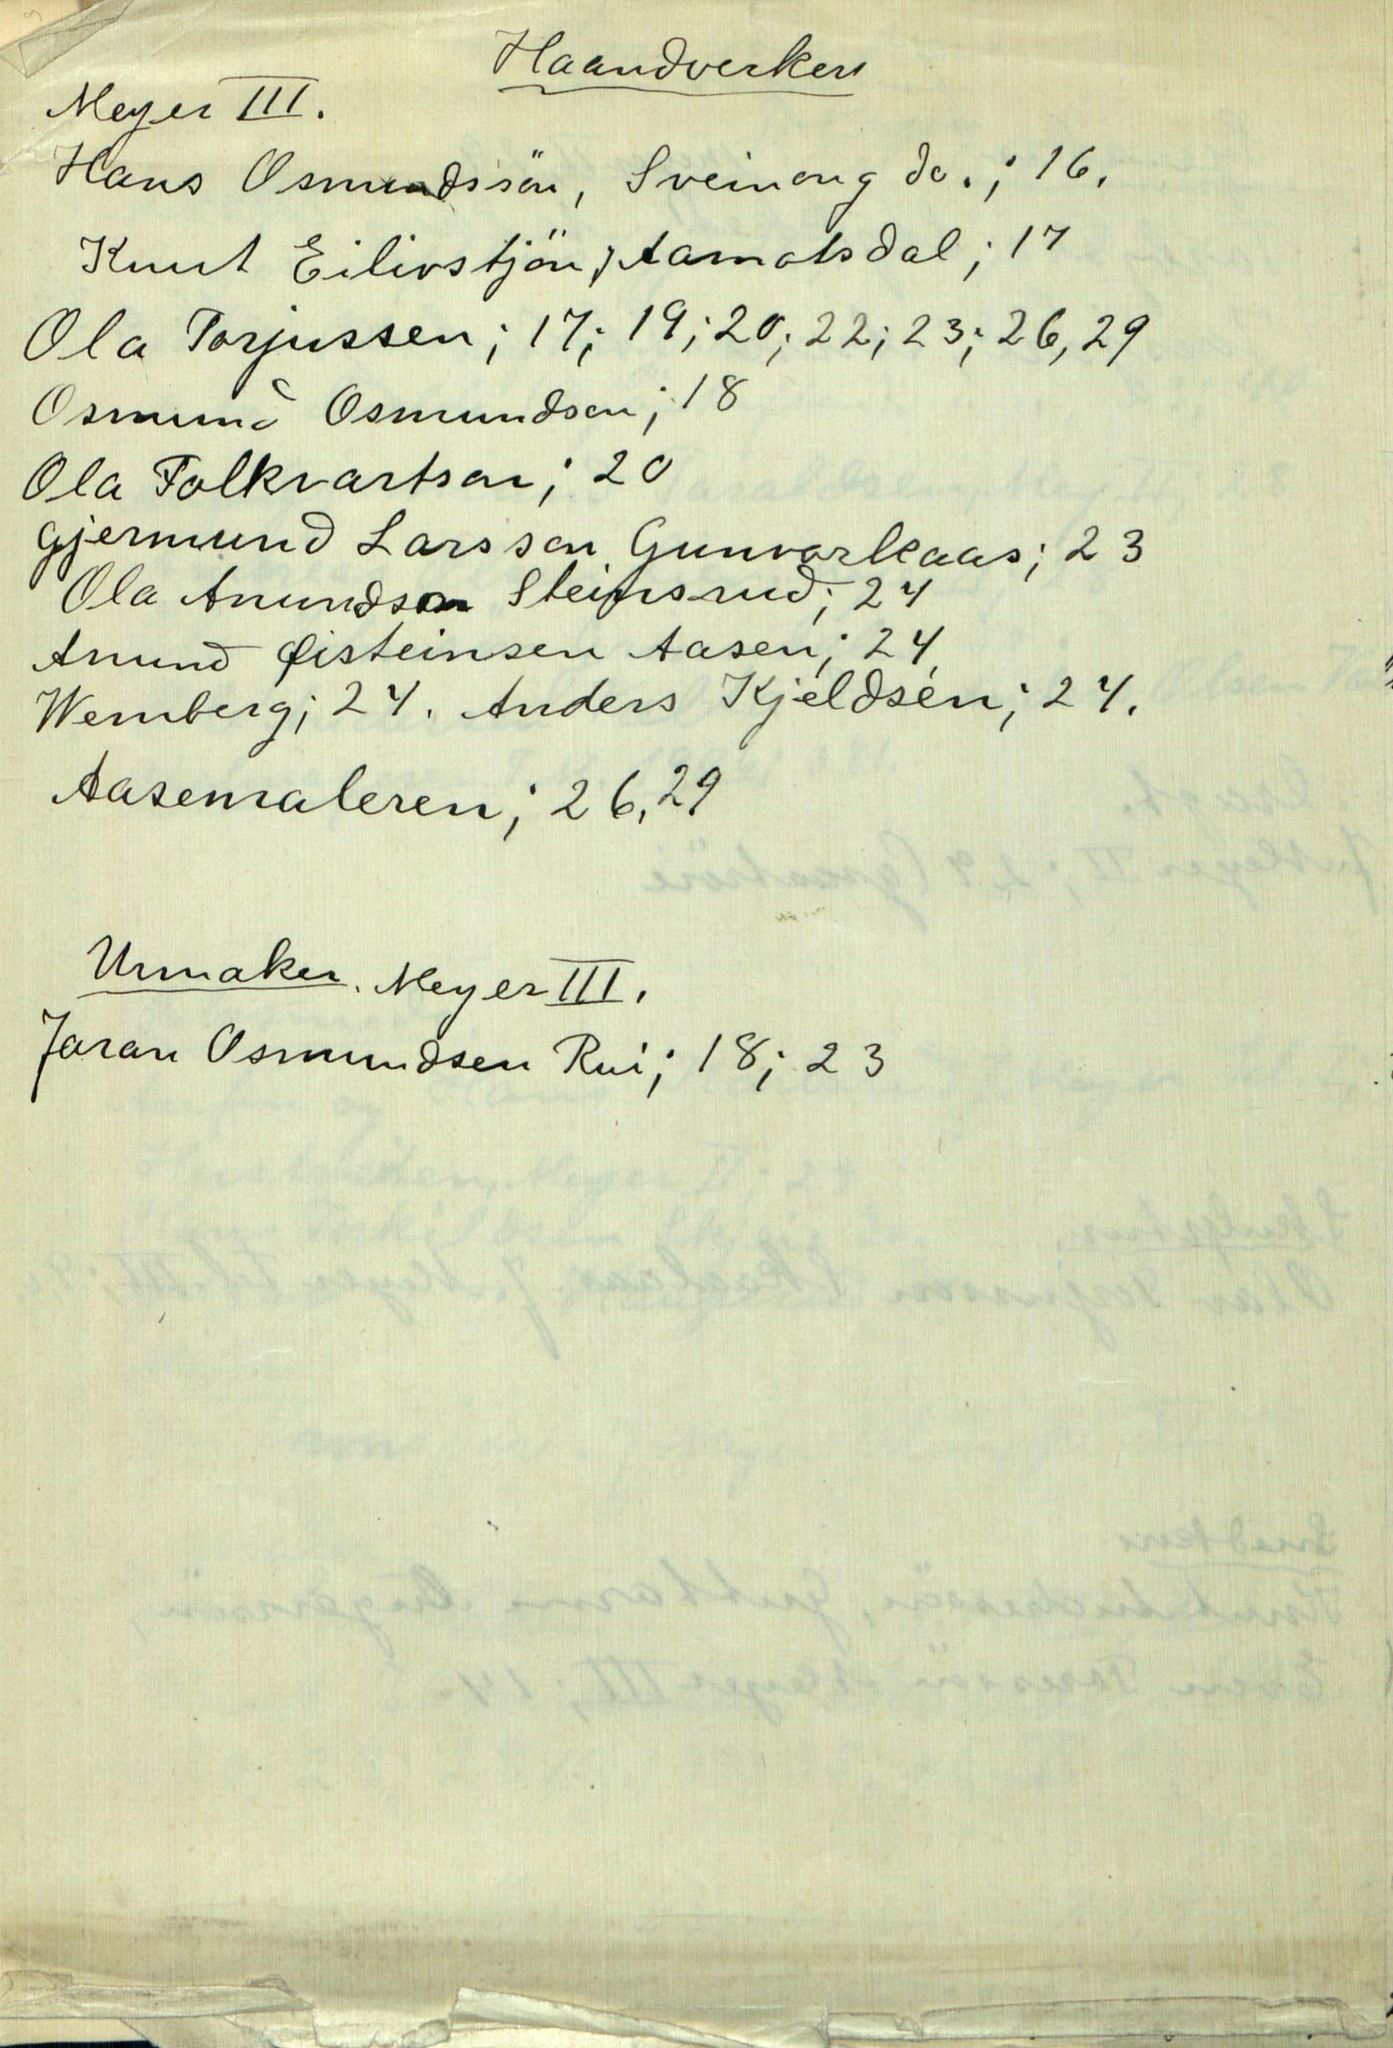 Haandverkere
Meyer III.
Hans Osmundssön, Sveinong do.; 16.
Knut Eilivstjön, Aamotsdal; 17
Ola Torjussen; 17; 19; 20; 22; 23; 26, 29
Osmund Osmundson; 18
Ola Folkvartson; 20
Gjermund Larsson Gunvorleaas; 23
Ola Anundson Steinsrud; 24
Anund Øisteinsen Aasen; 24
Wemberg; 24. Anders Kjeldsen; 24.
Aasemaleren; 26, 29
Urmaker. Meyer III.
Jaran Osmundsen Rui; 18; 23